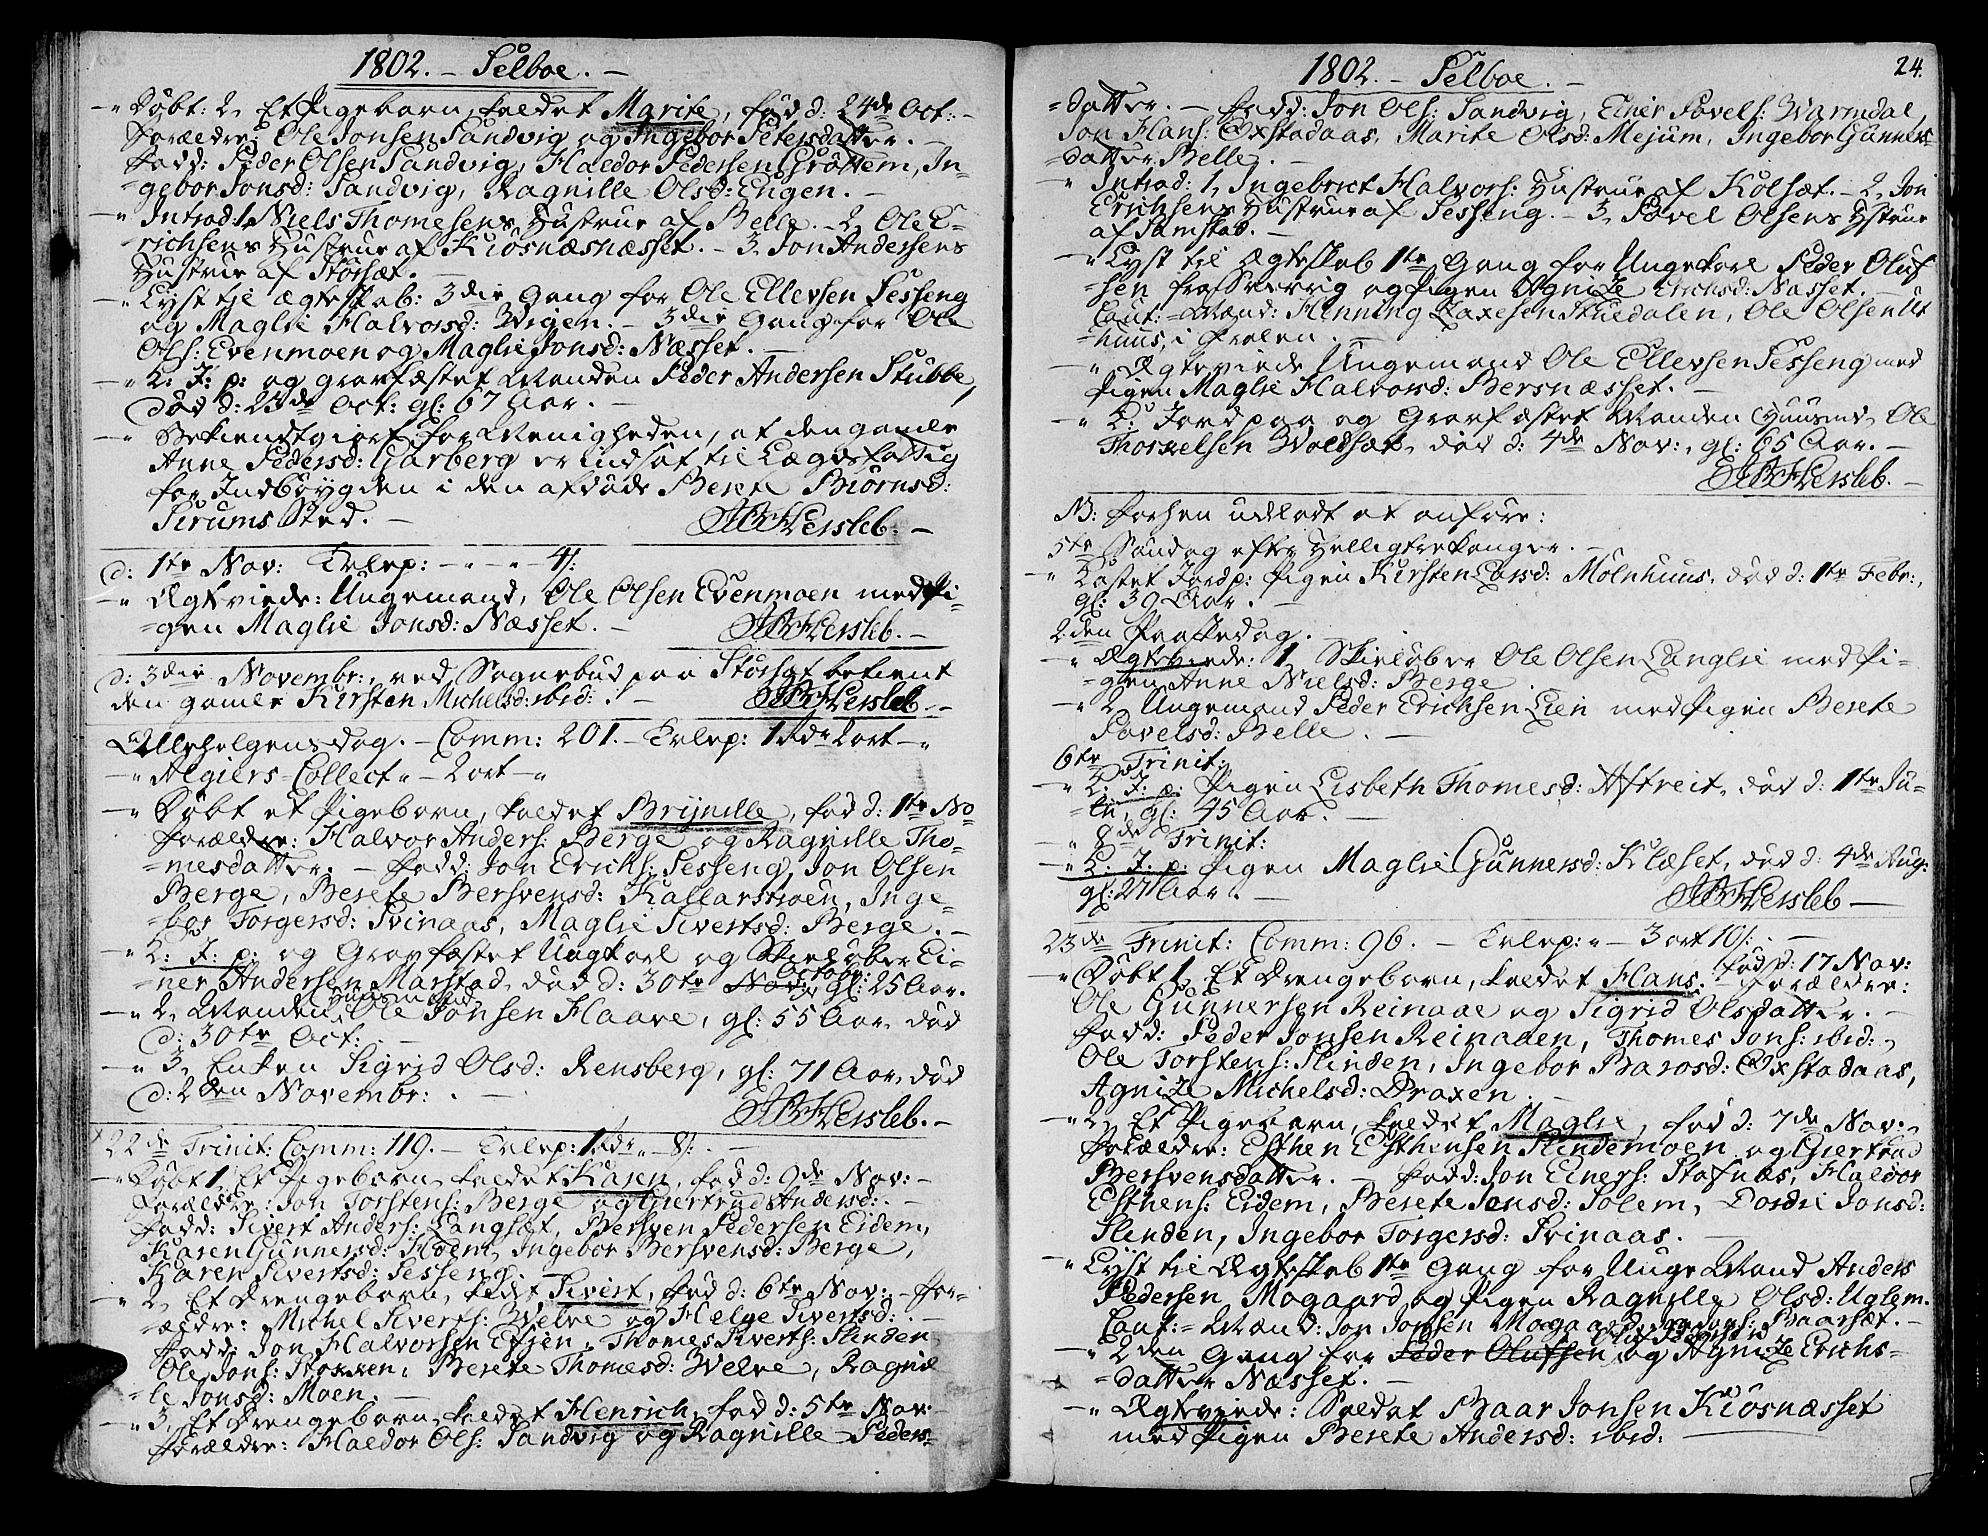 1802. - Selboe. -
-" Döbt: 2, Et Pigebarn, kaldet Marite, föd d: 24de Oct: -
Forældre: Ole Jonsen Sandvig og Ingebor Petersdatter. -
Fadd: Peder Olsen Sandvig, Haldor Pedersen Gröttem, In-
-gebor Jonsd: Sandvig, Ragnille Olsd: Engen. -
-" Introd: 1, Niels Thomesens Hustrue af Belle. - 2, Ole E-
-richsens Hustrue af Kiösnæsnæsset. - 3, Jon Andersens
Hustrue af Störset. -
-" Lyst til Ægteskab: 3die Gang for Ole Ellevsen Sesseng
og Maglie Halvorsd: Wigen. - 3die Gang for Ole
Ols: Evenmoen og Maglie Jonsd: Næsset. -
-" K: J: p: og Gravfæstet Manden Peder Andersen Stubbe,
död d: 23de Oct: gl: 67 Aar. -
-" Bekiendtgiort for Menigheden, at den gamle
Anne Pedersd: Garberg er indsat til Lægdsfattig
for Indböygden i den afdöde Berete Biörnsd:
Sirums Sted. - HHersleb. -
d: 1te Nov: Tvlep: - " - " 4/:
-" Ægteviede: Ungemand, Ole Olsen Evenmoen med Pi-
-gen Maglie Jonsd: Næsset. - HHersleb. -
d: 3die Novembr:, ved Sognebud paa Störset betient
den gamle Kirsten Michelsd: ibid: / HHersleb. -
Allehelgensdag. - Comm: 201. - Tvlep: 1 Rdr 2 ort - "
-" Algiers-Collect " - 2 ort - "
-" Döbt et Pigebarn, kaldet Brynille, föd d: 1te No
Forældre: Halvor Anders: Berge og Ragnille Tho-
-mesdatter. - Fadd: Jon Erichs: Sesseng, Jon Olsen
Berge, Berete Bersvensd: Kallarstroen, Inge-
-bor Torgersd: Svinaas, Maglie Sivertsd: Berge. -
-" K: J: p: og Gravfæstet Ungkarl og Skielöber Ei-
-ner Andersen Marstad, död d: 30te Nov: Octobr: gl: 25 Aar.
-" 2, Manden Huusmand Ole Jonsen Haave, gl: 55 Aar, död
d: 30te Oct: -
-" 3, Enken Sigrid Olsd: Rensberg, gl: 71 Aar, död
d: 2den Novembr: . - HHersleb. -
22de Trinit: Comm: 119. - Tvlep: 1 Rdr " - 8/: -
-" Döbt 1, Et Pigebarn, kaldet Karen, föd d: 9de Nov: -
Forældre: Jon Torstens: Berge og Giertrud Andersd: -
Fadd: Sivert Anders: Langset, Bersven Pedersen Eidem,
Karen Gunnersd: Hoem, Ingebor Bersvensd: Berge,
Karen Sivertsd: Sesseng.
-" 2, Et Drengebarn, kaldt Sivert, föd d: 6te Nov: - For-
-ældre: Michel Siverts: Welve og Helge Sivertsd: -
Fadd: Jon Halvorsen Evjen, Thomes Siverts: Slinden
Ole Jons: Stokken, Berete Thomesd: Welve, Ragnil
-le Jonsd: Moen. -
-" 3, Et Drengebarn, kaldet Henrich, föd d: 5te Nov: -
Forældre: Haldor Ols: Sandvig og Ragnille Peders-
1802. - Selboe. -
24.
-datter. - Fadd: Jon Ols: Sandvig, Einer Povels: Warmdal,
Jon Hans: Oxstadaas, Marite Olsd: Mejum, Ingebor Gunners-
-datter Belle. -
-" Introd: 1, Ingebrict Halvors: Hustrue af Kolset. - 2, Jon
Erichsens Hustrue af Sesseng. - 3, Povel Olsens Hstrue
af Samstad. -
-" Lyst til Ægteskab 1te Gang for Ungekarl Peder Oluf
-sen fra Sverrig og Pigen Agnize Erichsd: Næsset. -
Caut:-Mænd: Henning Laxesen Stuedalen, Ole Olsen Ut
-huus, i Tydalen. -
-" Ægteviede Ungemand Ole Ellevsen Sesseng med
Pigen Maglie Halvorsd: Bersnæsset. -
-" K: Jord paa og Gravfæstet Manden Huusmd Ole
Thorkelsen Woldset, död d: 4de Nov:, gl: 65 Aar. -
HHersleb. -
NB: Forhen udladt at anföre:
5te Söndag efter Helligtrekonger. -
-" Kastet Jord p: Pigen Kirsten Larsd: Molnhuus, död d: 1te Febr:,
gl: 39 Aar. -
2den Paaskedag. -
-" Ægteviede: 1, Skielöber Ole Olsen Langlie med Pi-
-gen Anne Nielsd: Berge
-" 2, Ungemand Peder Erichsen Lien med Pigen Berete
Povelsd: Belle. -
6te Trinit:
-" K: J: p: Pigen Lisbeth Thomesd: Aftreit, död d: 1te Ju-
-lii, gl: 45 Aar. -
-" 8de Trinit:
-" K: J: p: Pigen Maglie Gunnersd: Klæset, död d: 4de Aug:
gl: 27 Aar. - HHersleb -
23de Trinit: Comm: 96. - Tvlep: " - 3 ort 10/: -
-" Döbt 1, Et Drengebarn, kaldet Hans. föd d: 17 Nov: Forældre:
Ole Gunnersen Reinaae og Sigrid Olsdatter. -
Fadd: Peder Jonsen Reinaaen, Thomes Jons: ibid: -
Ole Torstens: Slinden, Ingebor Baarosd: Oxstadaas,
Agnize Michelsd: Draxen. -
-" 2, Et Pigebarn, kaldet Maglie, föd d: 7de Nov: -
Forældre: Esthen Esthensen Slindemoen og Giertrud
Bersvensdatter. - Fadd: Jon Einers: Stafnæs, Haldor
Esthens: Eidem, Berete Jonsd: Solem, Dordi Jonsd:
Slinden, Ingebor Torgersd: Svinaas. -
-" Lyst til Ægteskab 1te Gang for Unge Mand Anders
Pedersen Mogaard og Pigen Ragnille Olsd: Uglem.
Caut:-Mænd: Jon Jonsen Mogaard, og Jons: Baarset. -
-" 2den Gang for Peder Olufsen og Agnize Erichs-
-datter Næsset. -
-" Ægteviede: Soldat Baar Jonsen Kiösnæsset
med Pigen Berete Andersd: ibid: